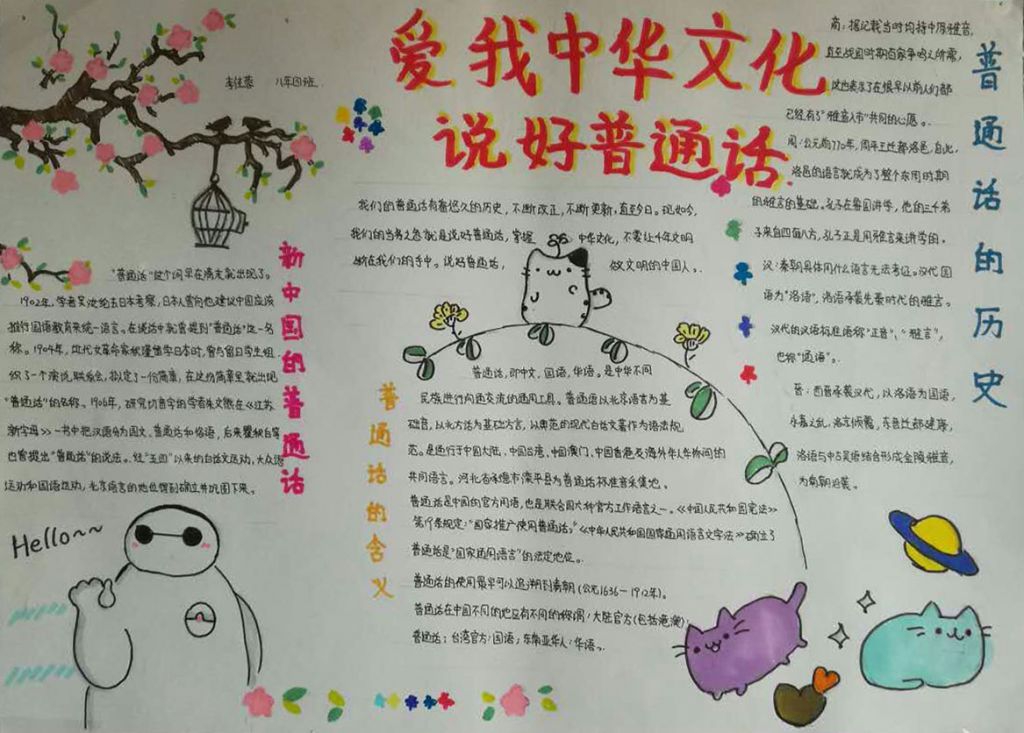 爱我中华文化
说好普通话
李佳蓉 八年四班
我们的普通话有着悠久的历史，不断改正，不断更新，直至今日。现如今，
我们的当务之急就是说好普通话，掌握中华文化，不要让千年文明
断在我们的手中。说好普通话，做文明的中国人。
新中国的普通话
"普通话"这个词早在清末就出现了。
1902年，学者吴汝纶去日本考察，日本人曾向他建议中国应该
推行国语教育来统一语言。在谈话中就曾提到"普通话"这一名
称。1904年，近代女革命家秋瑾留学日本时，曾与留日学生组
织了一个演说联系会，拟定了一份简章，在这份简章里就出现
"普通话"的名称。1906年，研究切音字的学者朱文熊在《江苏
新字母》一书中把汉语分为国文、普通话和俗语，后来瞿秋白等
也曾提出"普通话"的说法。经"五四"以来的白话文运动，大众语
运动和国语运动，北京语言的地位得到确立并巩固下来。
Hello~~
普通话的含义
普通话，即中文，国语，华语。是中华不同
民族进行沟通交流的通用工具。普通话以北京语言为基
础音，以北方话为基础方言，以典范的现代白话文著作为语法规
范。是通行于中国大陆，中国台湾，中国澳门，中国香港及海外华人华侨间的
共同语言。河北省承德市滦平县为普通话标准音采集地。
普通话是中国的官方用语，也是联合国六种官方工作语言之一。《中国人民共和国宪法》
第19条规定："国家推广使用普通话。"《中华人民共和国国家通用语言文字法》确立了
普通话是"国家通用语言"的法定地位。
普通话的使用最早可以追溯到清朝（公元1636-1912年）。
普通话在中国不同的地区有不同的称谓：大陆官方（包括港澳）：
普通话；台湾官方：国语；东南亚华人：华语。
普通话的历史
商：据记载当时均持中原雅音，
直至战国时期百家争鸣之所需，
这也表示了在很早以前人们都
已经有了"雅音入市"共同的心愿。
周：公元前770年，周平王迁都洛邑，自此，
洛邑的语言就成为了整个东周时期
的雅言的基础。孔子在鲁国讲学，他的三千弟
子来自四面八方，孔子正是用雅言来讲学的。
汉：秦朝具体用什么语言无法考证。汉代国
语为"洛语"，洛语承袭先秦时代的雅言。
汉代的汉语标准语称"正音"、"雅言"，
也称"通语"。
晋：西晋承袭汉代，以洛语为国语，
永嘉之乱，洛京倾覆，东晋迁都建康，
洛语与中古吴语结合形成金陵雅音，
为南朝沿袭。